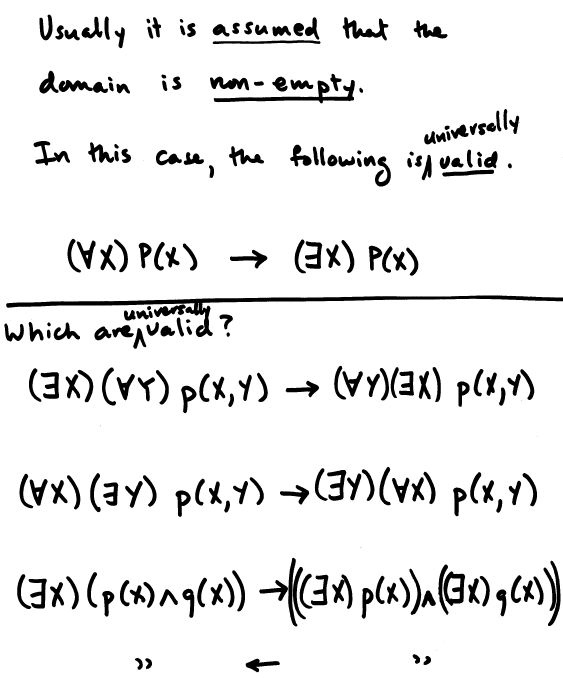 Usually it is assumed that the
domain is non-empty.
In this case, the following is universally valid.
(∀X) P(X) → (∃X) P(X)
Which are universally valid?
(∃X)(∀Y) p(X,Y) → (∀Y)(∃X) p(X,Y)
(∀X)(∃Y) p(X,Y) → (∃Y)(∀X) p(X,Y)
(∃X)(p(X)∧q(X)) → (((∃X) p(X))∧((∃X) q(X)))
" ← "